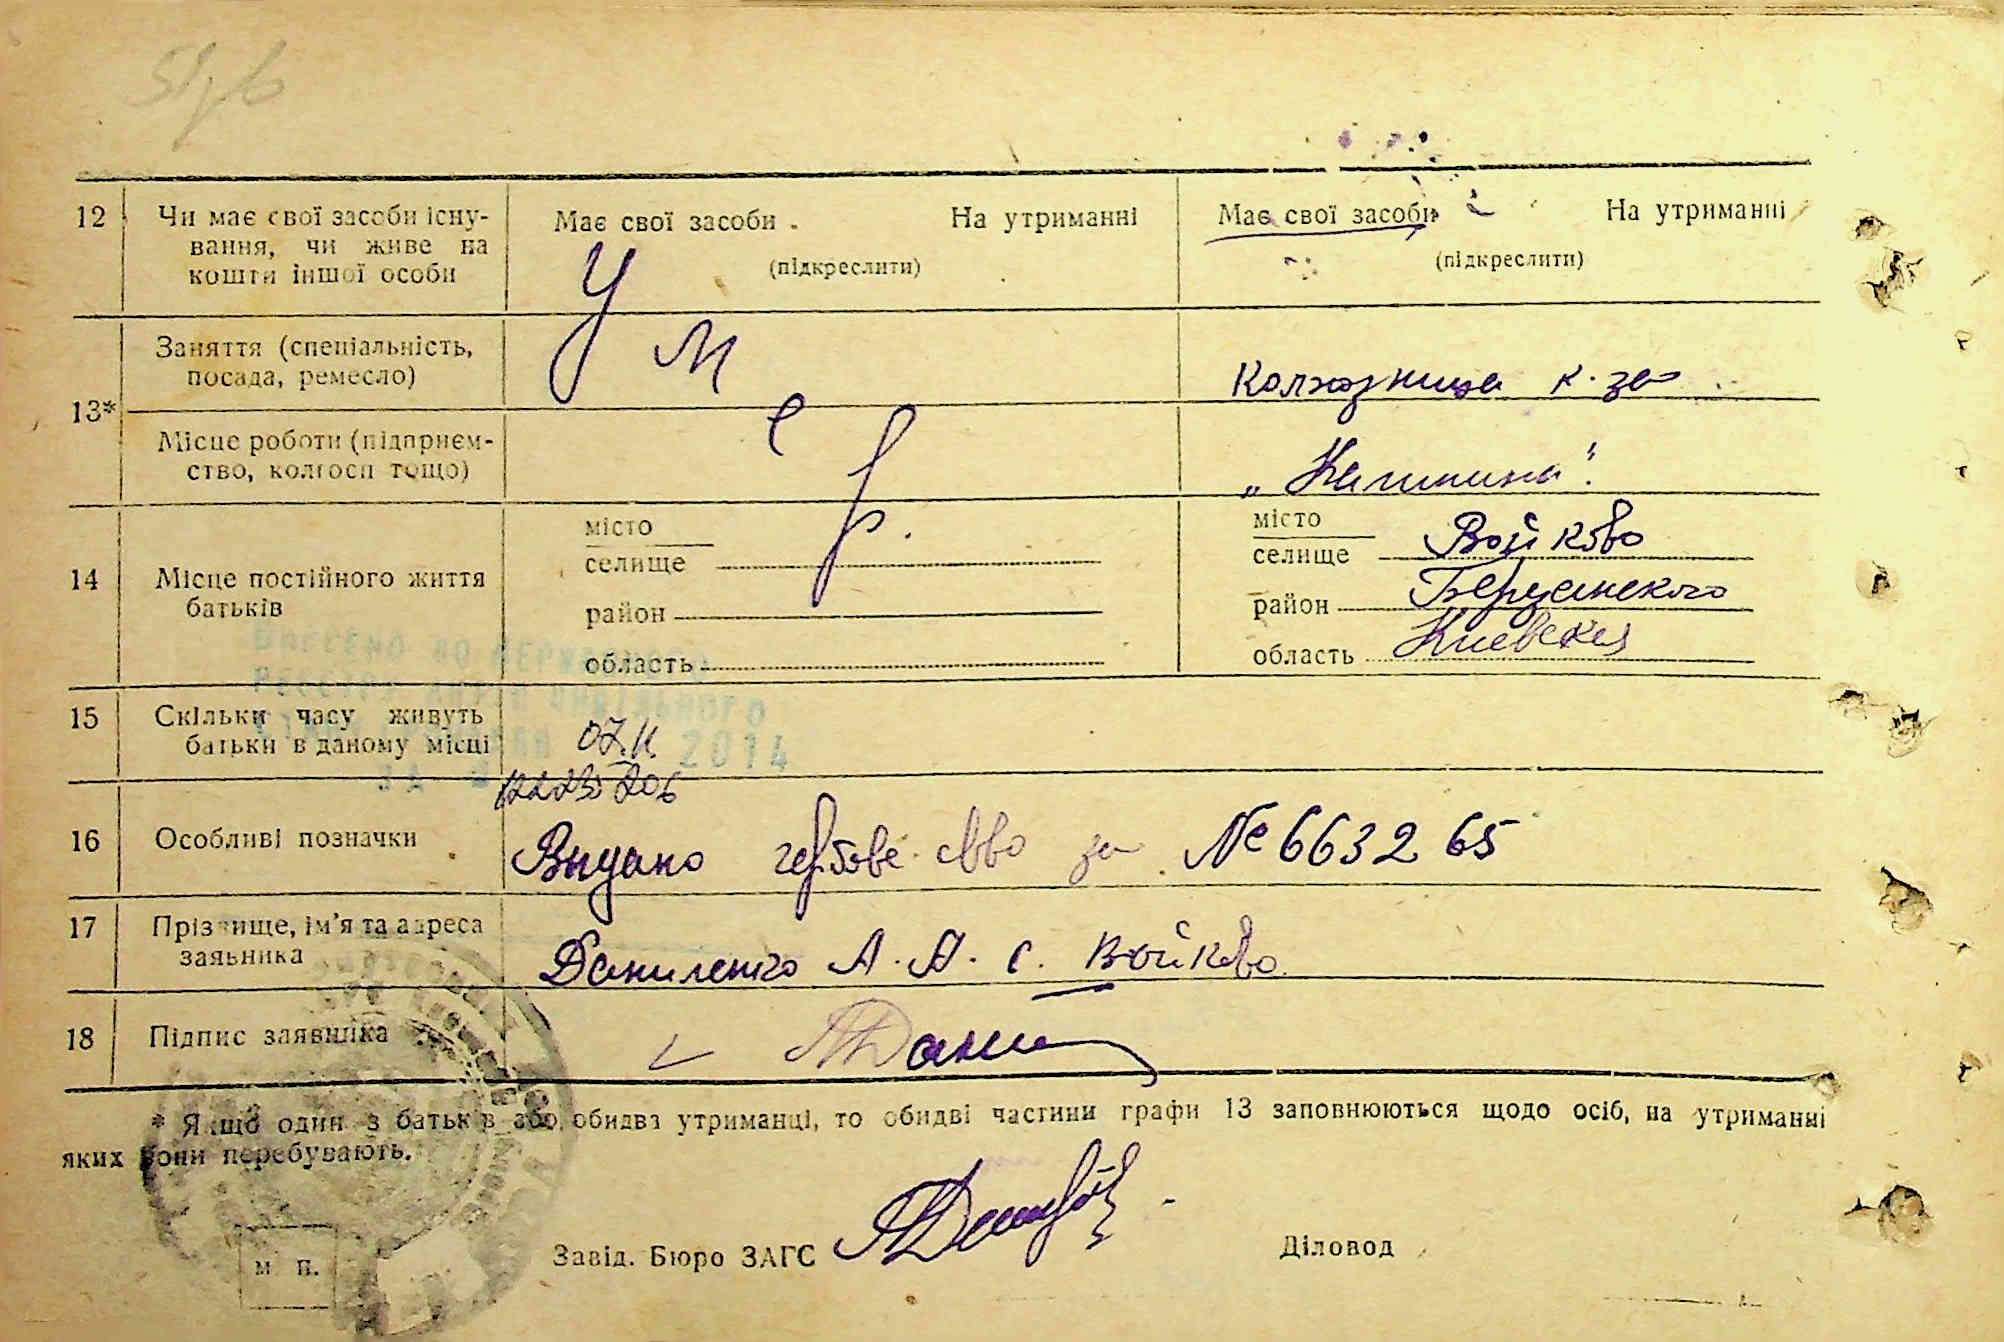 12 Чи має свої засоби існу- Має свої засоби На утриманні Має свої засоби На утриманні
вання, чи живе на
кошти іншої особи (підкреслити) (підкреслити)
У
м
е
р.
Заняття (спеціальність,
посада, ремесло) Колхозница к-за
13*
Місце роботи (підприєм-
ство, колгосп тощо) „Калинина".
14 Місце постійного життя
батьків
місто місто
селище селище Войково
район район
область область Киевская
ВНЕСЕНО ДО ДЕРЖАВНОГО
РЕЄСТРУ АКТІВ ЦИВІЛЬНОГО
2014
15 Скільки часу живуть
батьки в даному місці
16 Особливі позначки Выдано гербове св-во за № 663265
17 Прізвище, ім'я та адреса
заявника Даниленко А. А. с. Войково.
18 Підпис заявника
* Якщо один з батьків або обидва утриманці, то обидві частини графи 13 заповнюються щодо осіб, на утриманні
яких вони перебувають.
м п. Завід. Бюро ЗАГС Діловод